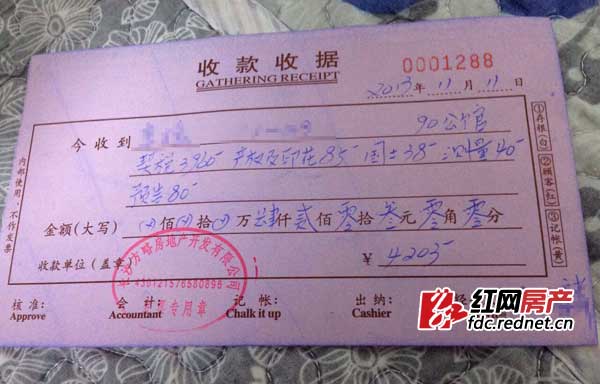 收款收据
GATHERING RECEIPT
0001288
2013年11月11日
今收到
90公官
契税3960- 产权及印花85- 国土38- 测量40-
预告80-
金额(大写) 佰 拾 万肆仟贰佰零拾叁元零角零分
收款单位(盖章)
¥ 4203-
长沙方略房地产开发有限公司
专用章
核准:
会计:
记帐:
出纳:
Approve
Accountant
Chalk it up
Cashier
内部使用,不作发票
①存根(白)②顾客(红)③记帐(黄)
红网房产
fdc.rednet.cn